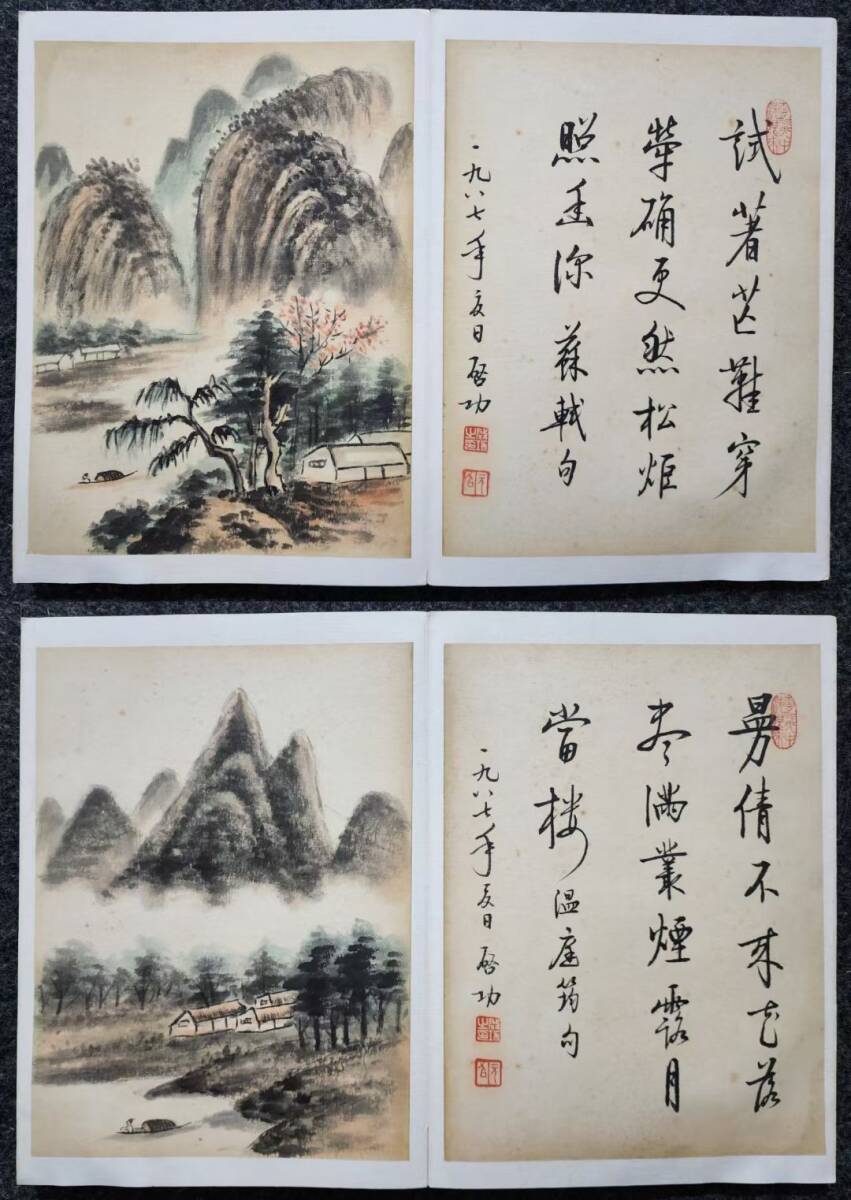 試著芒鞋穿
犖确更然松炬
照幽深 蘇軾句
一九八七年夏日 啓功
曼倩不來花落
盡滿叢煙露月
當楼 温庭筠句
一九八七年夏日 啓功